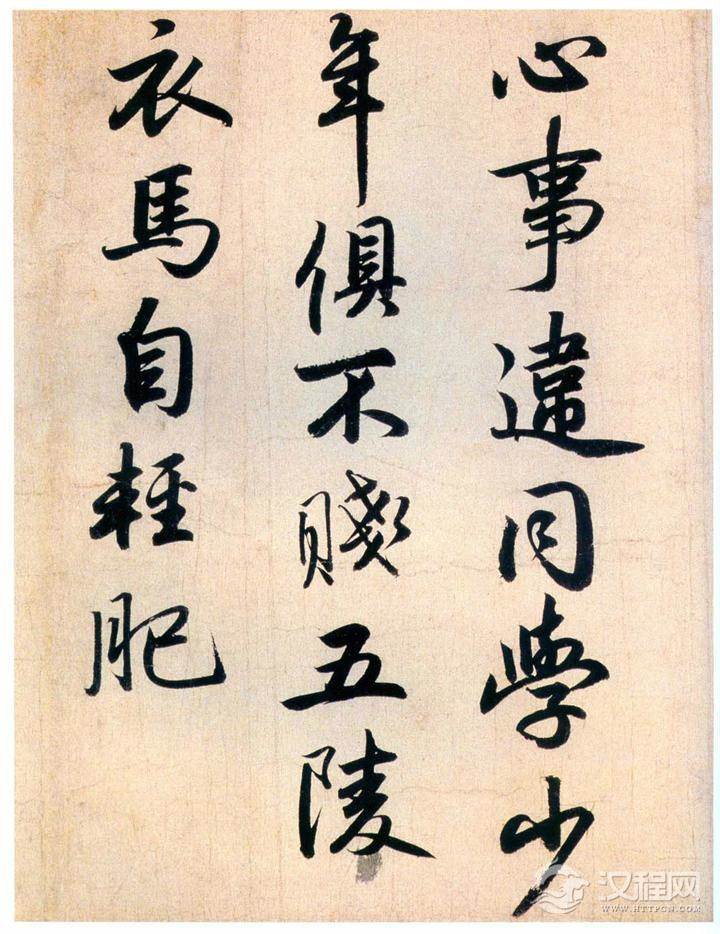 心事違同學少
年俱不賤五陵
衣馬自輕肥
汉程网
WWW.HTTPCN.COM